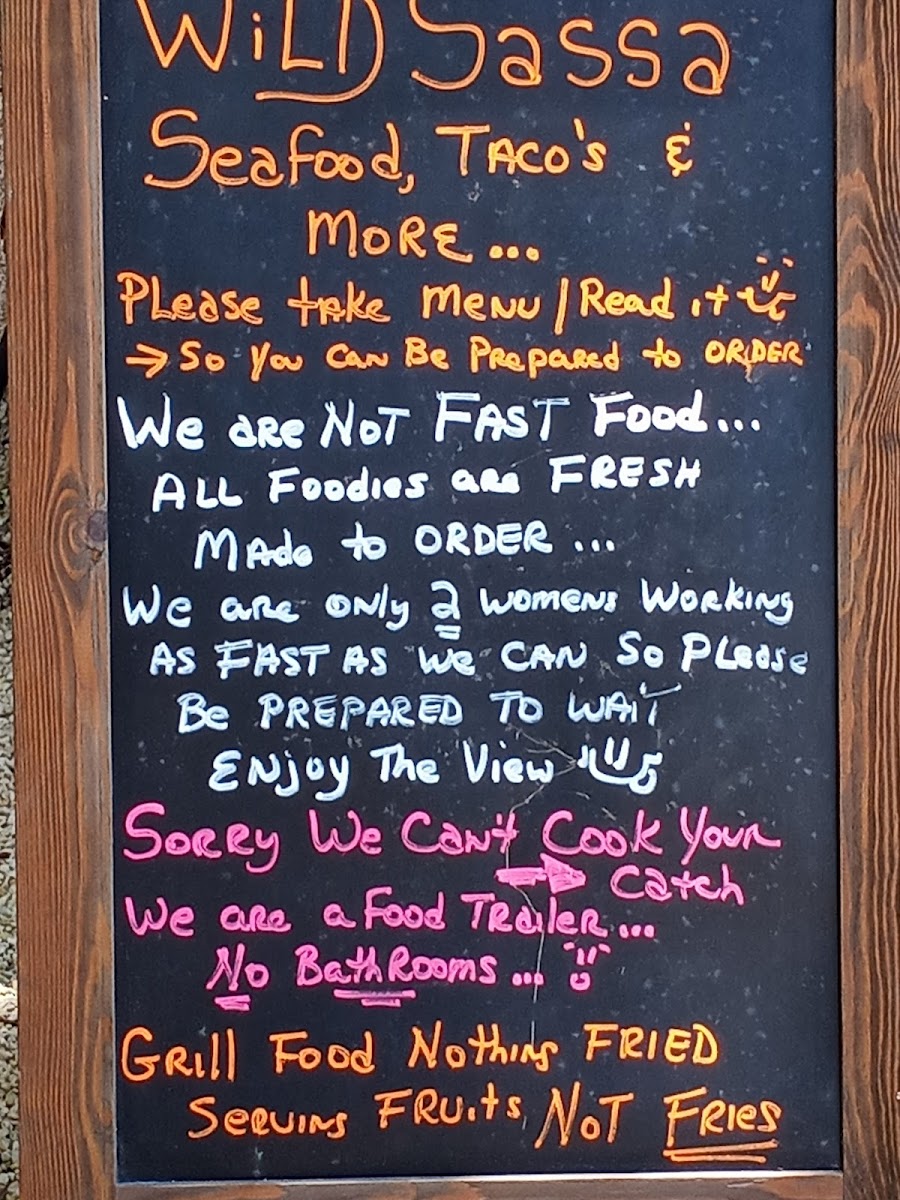 WiLD Sassa
Seafood, TACO's &
MORE...
PLease take menu / Read it
→ So You Can Be Prepared to ORDER
We are NOT FAST Food...
ALL Foodies are FRESH
Made to ORDER...
We are only 2 womens Working
AS FAST AS We CAN So PLease
Be PREPARED TO WAIT
ENjoy The View
Sorry We Can't Cook Your
→ Catch
We are a Food Trailer...
No BathRooms...
Grill Food Nothing FRIED
Serving FRuits NOT FRies